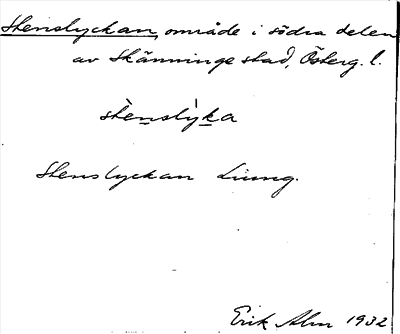 Stenslyckan, område i södra delen
av Skänninge stad, Österg. l.
stènslỳka
Stenslyckan Ljung.
Erik Alm 1932